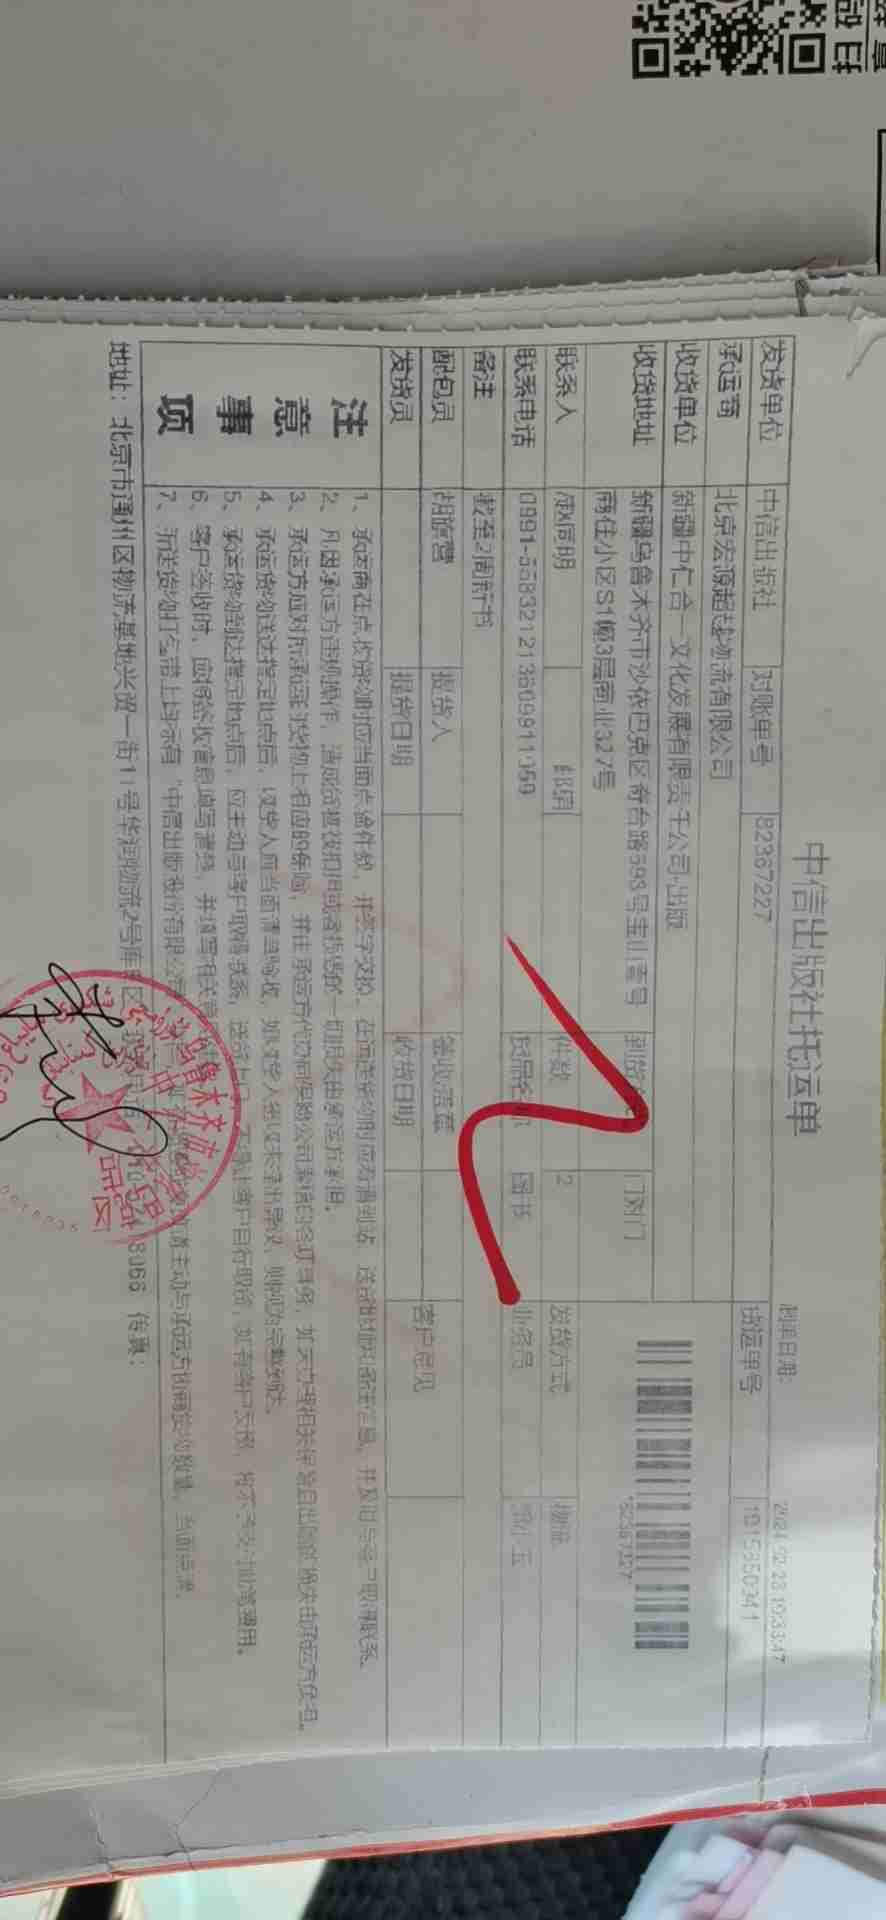 中信出版社托运单
制单日期: 2024-02-23 10:33:47
发货单位 中信出版社 对账单号 82367227 货运单号 1015350341
承运商 北京宏源超越物流有限公司
收货单位 新疆中仁合一文化发展有限责任公司-出版
收货地址 新疆乌鲁木齐市沙依巴克区奇台路593号宝山壹号
商住小区S1幢3层商业327号
门对门
82367227
联系人 邮编 件数 2 发货方式 物流
联系电话 货品名称 图书 业务员
备注 截至2周新书
配包员 胡旗营 提货人 签收/盖章 客户意见
发货员 提货日期 收货日期
注意事项
1、承运商在点收货物时应当面点验件数,并签字交接,在运送货物时应看清到站、送货时限和备注信息,并及时与客户取得联系。
2、凡因承运方违规操作,造成货物被扣押或者损毁的一切损失由承运方承担。
3、承运方应对所承运的货物上相应的保险,并由承运方代办向保险公司索赔的各项事务,如未办理相关保险自出险的损失由承运方负担。
4、承运货物送达指定地点后,收货人应当面清点验收,如收货人签收未注出异议,则视为完整到达。
5、承运货物到达指定地点后,应主动与客户取得联系,送货上门,不得让客户自行取货,如有客户反映,将不予支付运输费用。
6、客户签收时,应将签收信息填写清楚,并填写相关意
7、所送货物打包带上均标有“中信出版股份有限公司
地址:北京市通州区物流基地兴贸一街11号华润物流2号库 传真: